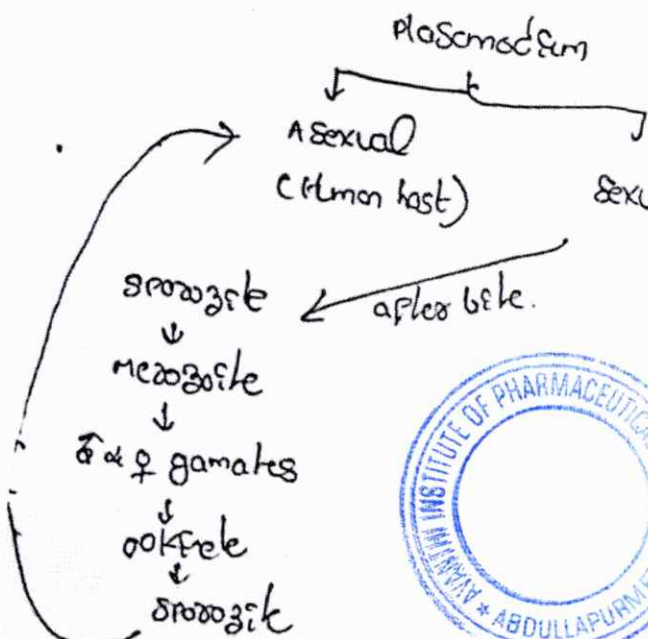 Plasmodium
Asexual
(Human host)
Sexu
after bite.
sporozite
merozoite
♂ & ♀ gamates
ookinete
sporozite
AVANTHI INSTITUTE OF PHARMACEUTICAL
* ABDULLAPURMET